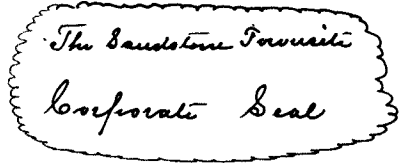 The Sandstone Townsite
Corporate Seal